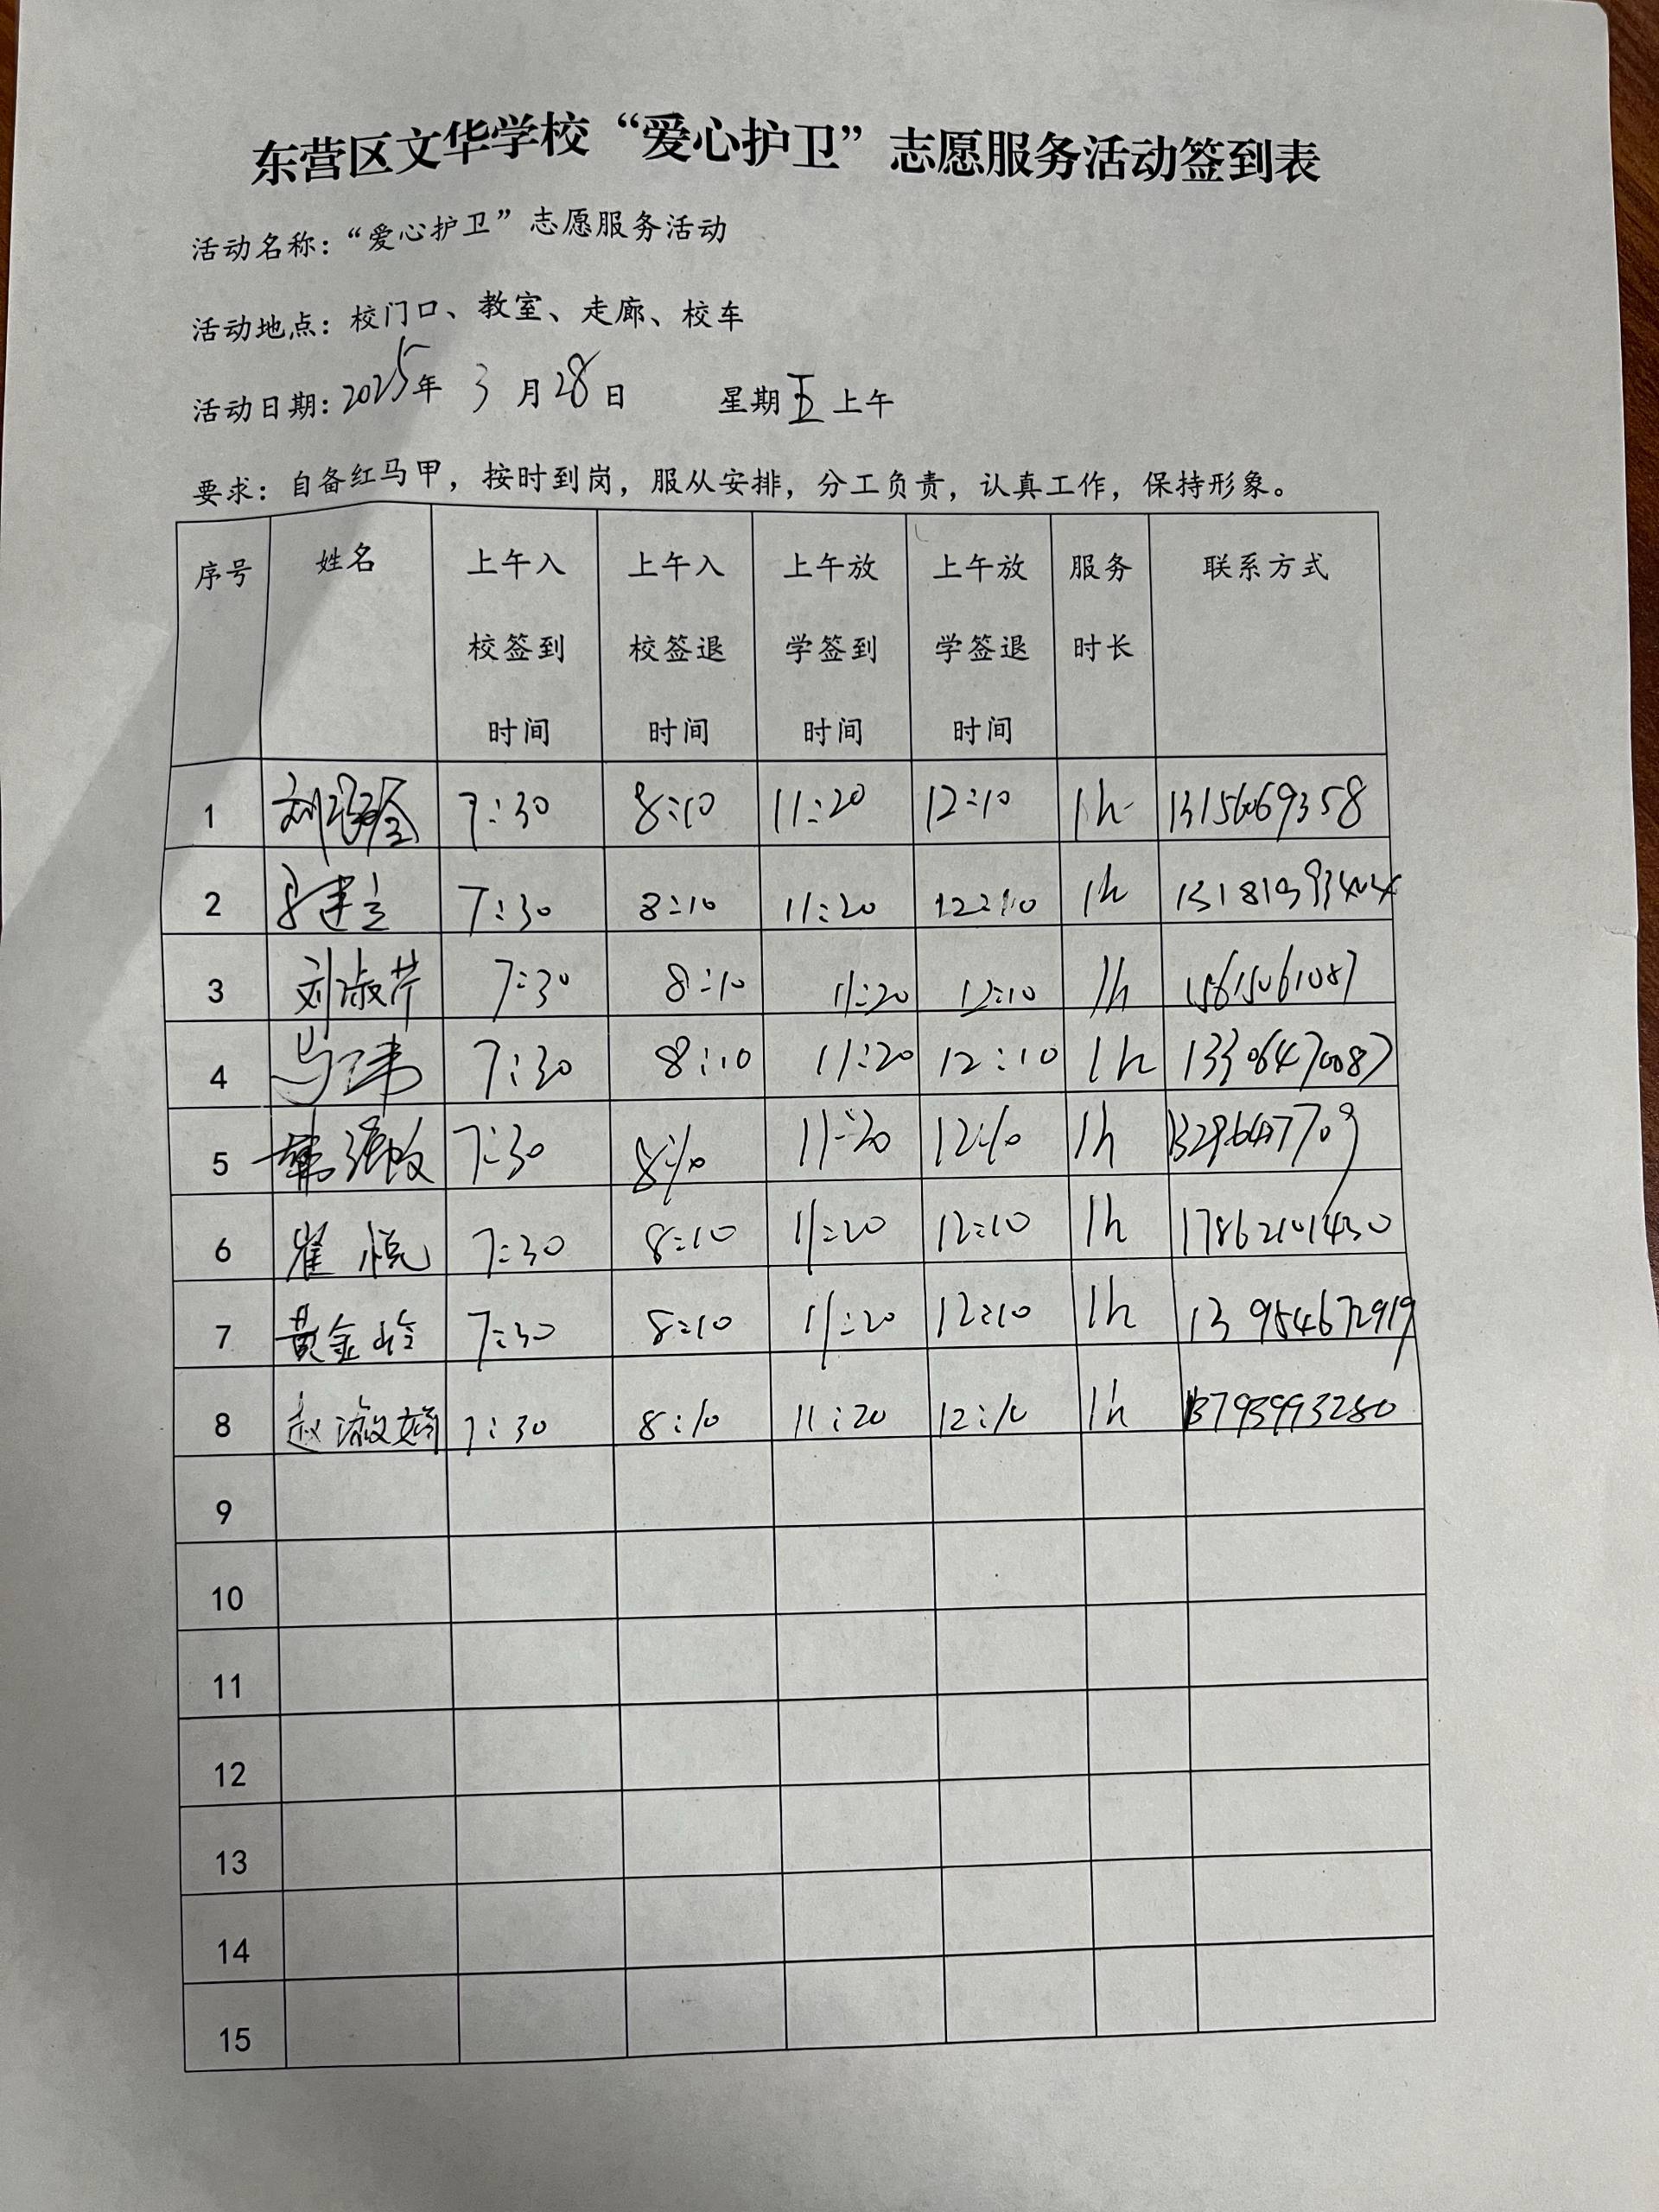 东营区文华学校“爱心护卫”志愿服务活动签到表
活动名称：“爱心护卫”志愿服务活动
活动地点：校门口、教室、走廊、校车
活动日期：2025年 3 月 28 日 星期五 上午
要求：自备红马甲，按时到岗，服从安排，分工负责，认真工作，保持形象。
序号 姓名 上午入校签到时间 上午入校签退时间 上午放学签到时间 上午放学签退时间 服务时长 联系方式
1 7:30 8:10 11:20 12:10 1h
2 7:30 8:10 11:20 12:10 1h
3 刘淑芹 7:30 8:10 11:20 12:10 1h 15615061087
4 7:30 8:10 11:20 12:10 1h 13306470087
5 7:30 8:10 12:10 1h
6 崔悦 7:30 8:10 11:20 12:10 1h 17862101430
7 黄金玲 7:30 8:10 11:20 12:10 1h 13954672919
8 7:30 8:10 11:20 12:10 1h 13793993280
9
10
11
12
13
14
15